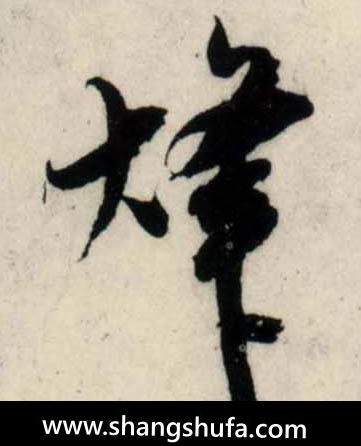 烽
www.shangshufa.com